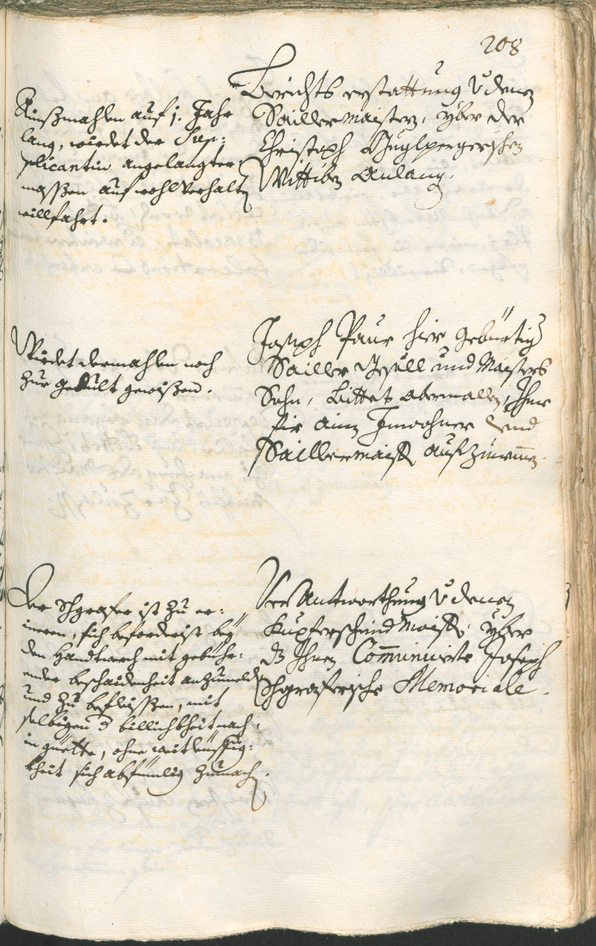 208
Berichts erstattung v denen
Saillermaistern, yber der
Christoph
Wittiben Anlang.
Ainßmahlen auf 1. Jahr
lang, würdet der Sup-
plicantin angelangter
massen auf wohlverhalten
willfahrt.
Joseph Paur hier gebürtig
Sailler Gesöll und Maisters
Sohn, bittet abermallen, Ihne
für ainen Inwohner und
Saillermaister aufzunemmen.
Würdet dermahlen noch
zur gedult gewisen.
Verantworthung v denen
Kupferschmidmaister, yber
Ihnen Communicirte Joseph
Schgraferische Memoriale.
Der Schgrafer ist zu er-
inern, sich beforderist bey
den Handtwerch mit gebühr-
ender beschaidenheit anzumelden
und zu befleissen, mit
selbigen d billichkheit nach,
in guette, ohne weitleiffig-
kheit sich abfündig zumachen